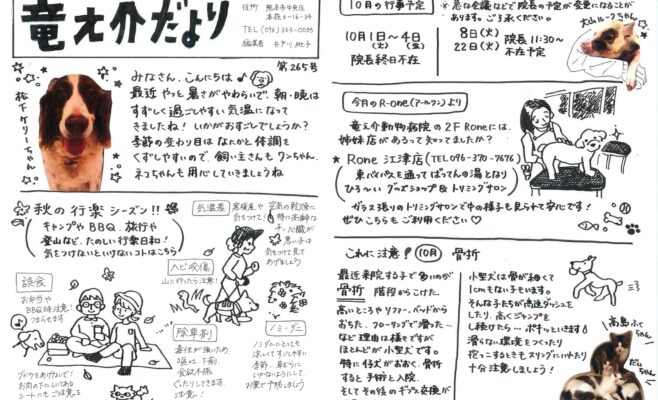 竜之介だより
住所 熊本市中央区
本荘6-16-34
TEL(096)363-0033
第265号
松下ケリーちゃん
みなさん、こんにちは♪
最近やっと暑さがやわらいで、朝・晩は
すずしく過ごしやすい気温になって
きましたね！いかがおすごしでしょうか？
季節の変わり目はなにかと体調を
くずしやすいので、飼い主さんもワンちゃん、
ネコちゃんも用心していきましょうね
☆秋の行楽シーズン!!
キャンプやBBQ、旅行や
登山など、たのしい行楽日和！
気をつけないといけないコトはこちら
気温差
寒暖差や
気をつけて！
空気の乾燥
特に高齢な
子、心臓が
悪い子は
気をつけて見て
あげましょう
ヘビ咬傷
山に行ったら注意！
誤食
お弁当や
BBQ時注意！
つまらせます
ブドウをあげないで！
お肉の下にしいてある
シートにもご注意を
除草剤
毒性が強いため、
嘔吐、下痢、
食欲不振
ぐったりしてきます。
注意！
ノミ・ダニ
ノミ・ダニにとっても
涼しくてすごしやすい
季節…草むらに
いっぱいいるようにして、
お薬で予防しましょう
10月の行事予定
※急な会議などで院長の予定が変更になることが
あります。ご了承ください。
10月1日〜4日
(土) (金)
院長終日不在
8日(火) 院長11:30〜
22日(火) 不在予定
大山ルークちゃん
今月のR-one(アールワン)より
竜之介動物病院の2F Roneには、
姉妹店があるって知ってましたか？
★ Rone 江津店 (TEL096-370-7676)
東バイパスを通ってばってんの湯となり
ひろ〜い グッズショップ＆トリミングサロン
ガラス張りのトリミングサロンで中の様子も見られて安心です！
ぜひこちらもご利用ください♡
これに注意！ 10月 骨折
最近来院する子で多いのが
骨折 階段からこけた、
高いところやソファー、ベッドから
おちた、フローリングで滑った…
など理由は様々ですが
ほとんどが小型犬です。
特に仔犬がおおく、骨折
すると手術と入院、
そしてその後のギプス交換が
小型犬は骨が細くて
1cmもない子もいます。
そんな子たちが高速ダッシュを
したり、高くジャンプを
し続けたら…ポキッといきます
滑らない環境をつくったり
抱っこするときもスリングにいれたり
十分注意しましょう！
高島ふくちゃん
だいちゃん